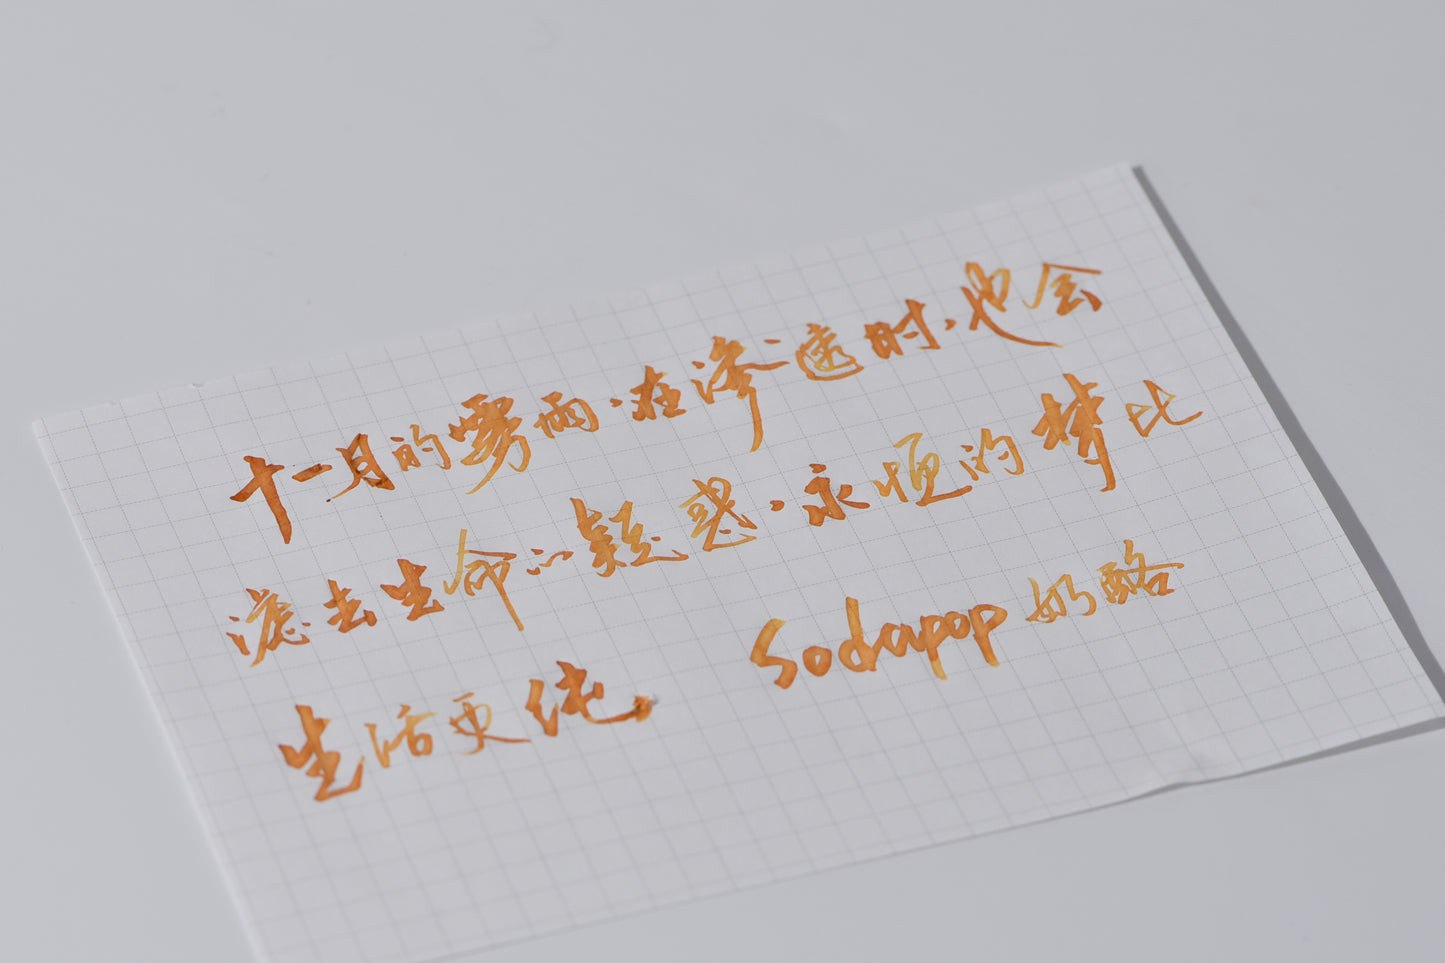 十一月的雾雨，在渗透时，也会
滤去生命的疑惑，永恒的梦比
生活更纯。 Sodapop 奶酪